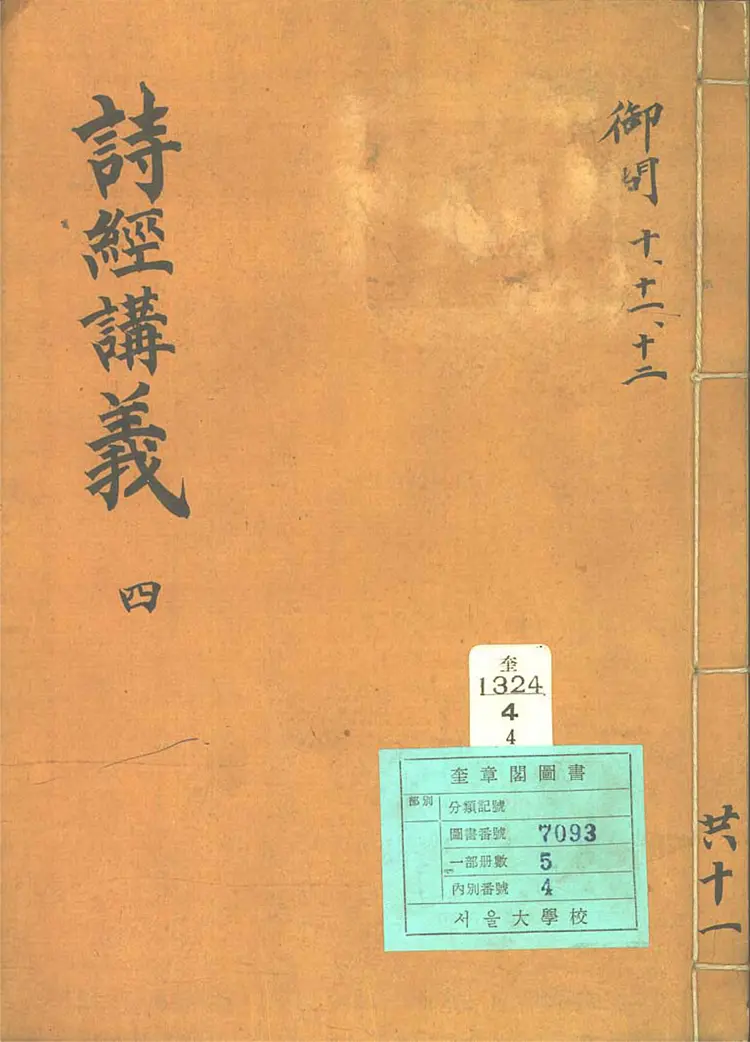 詩經講義 四
御問 十、十一、十二
奎
1324
4
4
奎章閣圖書
部別
分類記號
圖書番號 7093
一部册數 5
內別番號 4
서울大學校
共十一